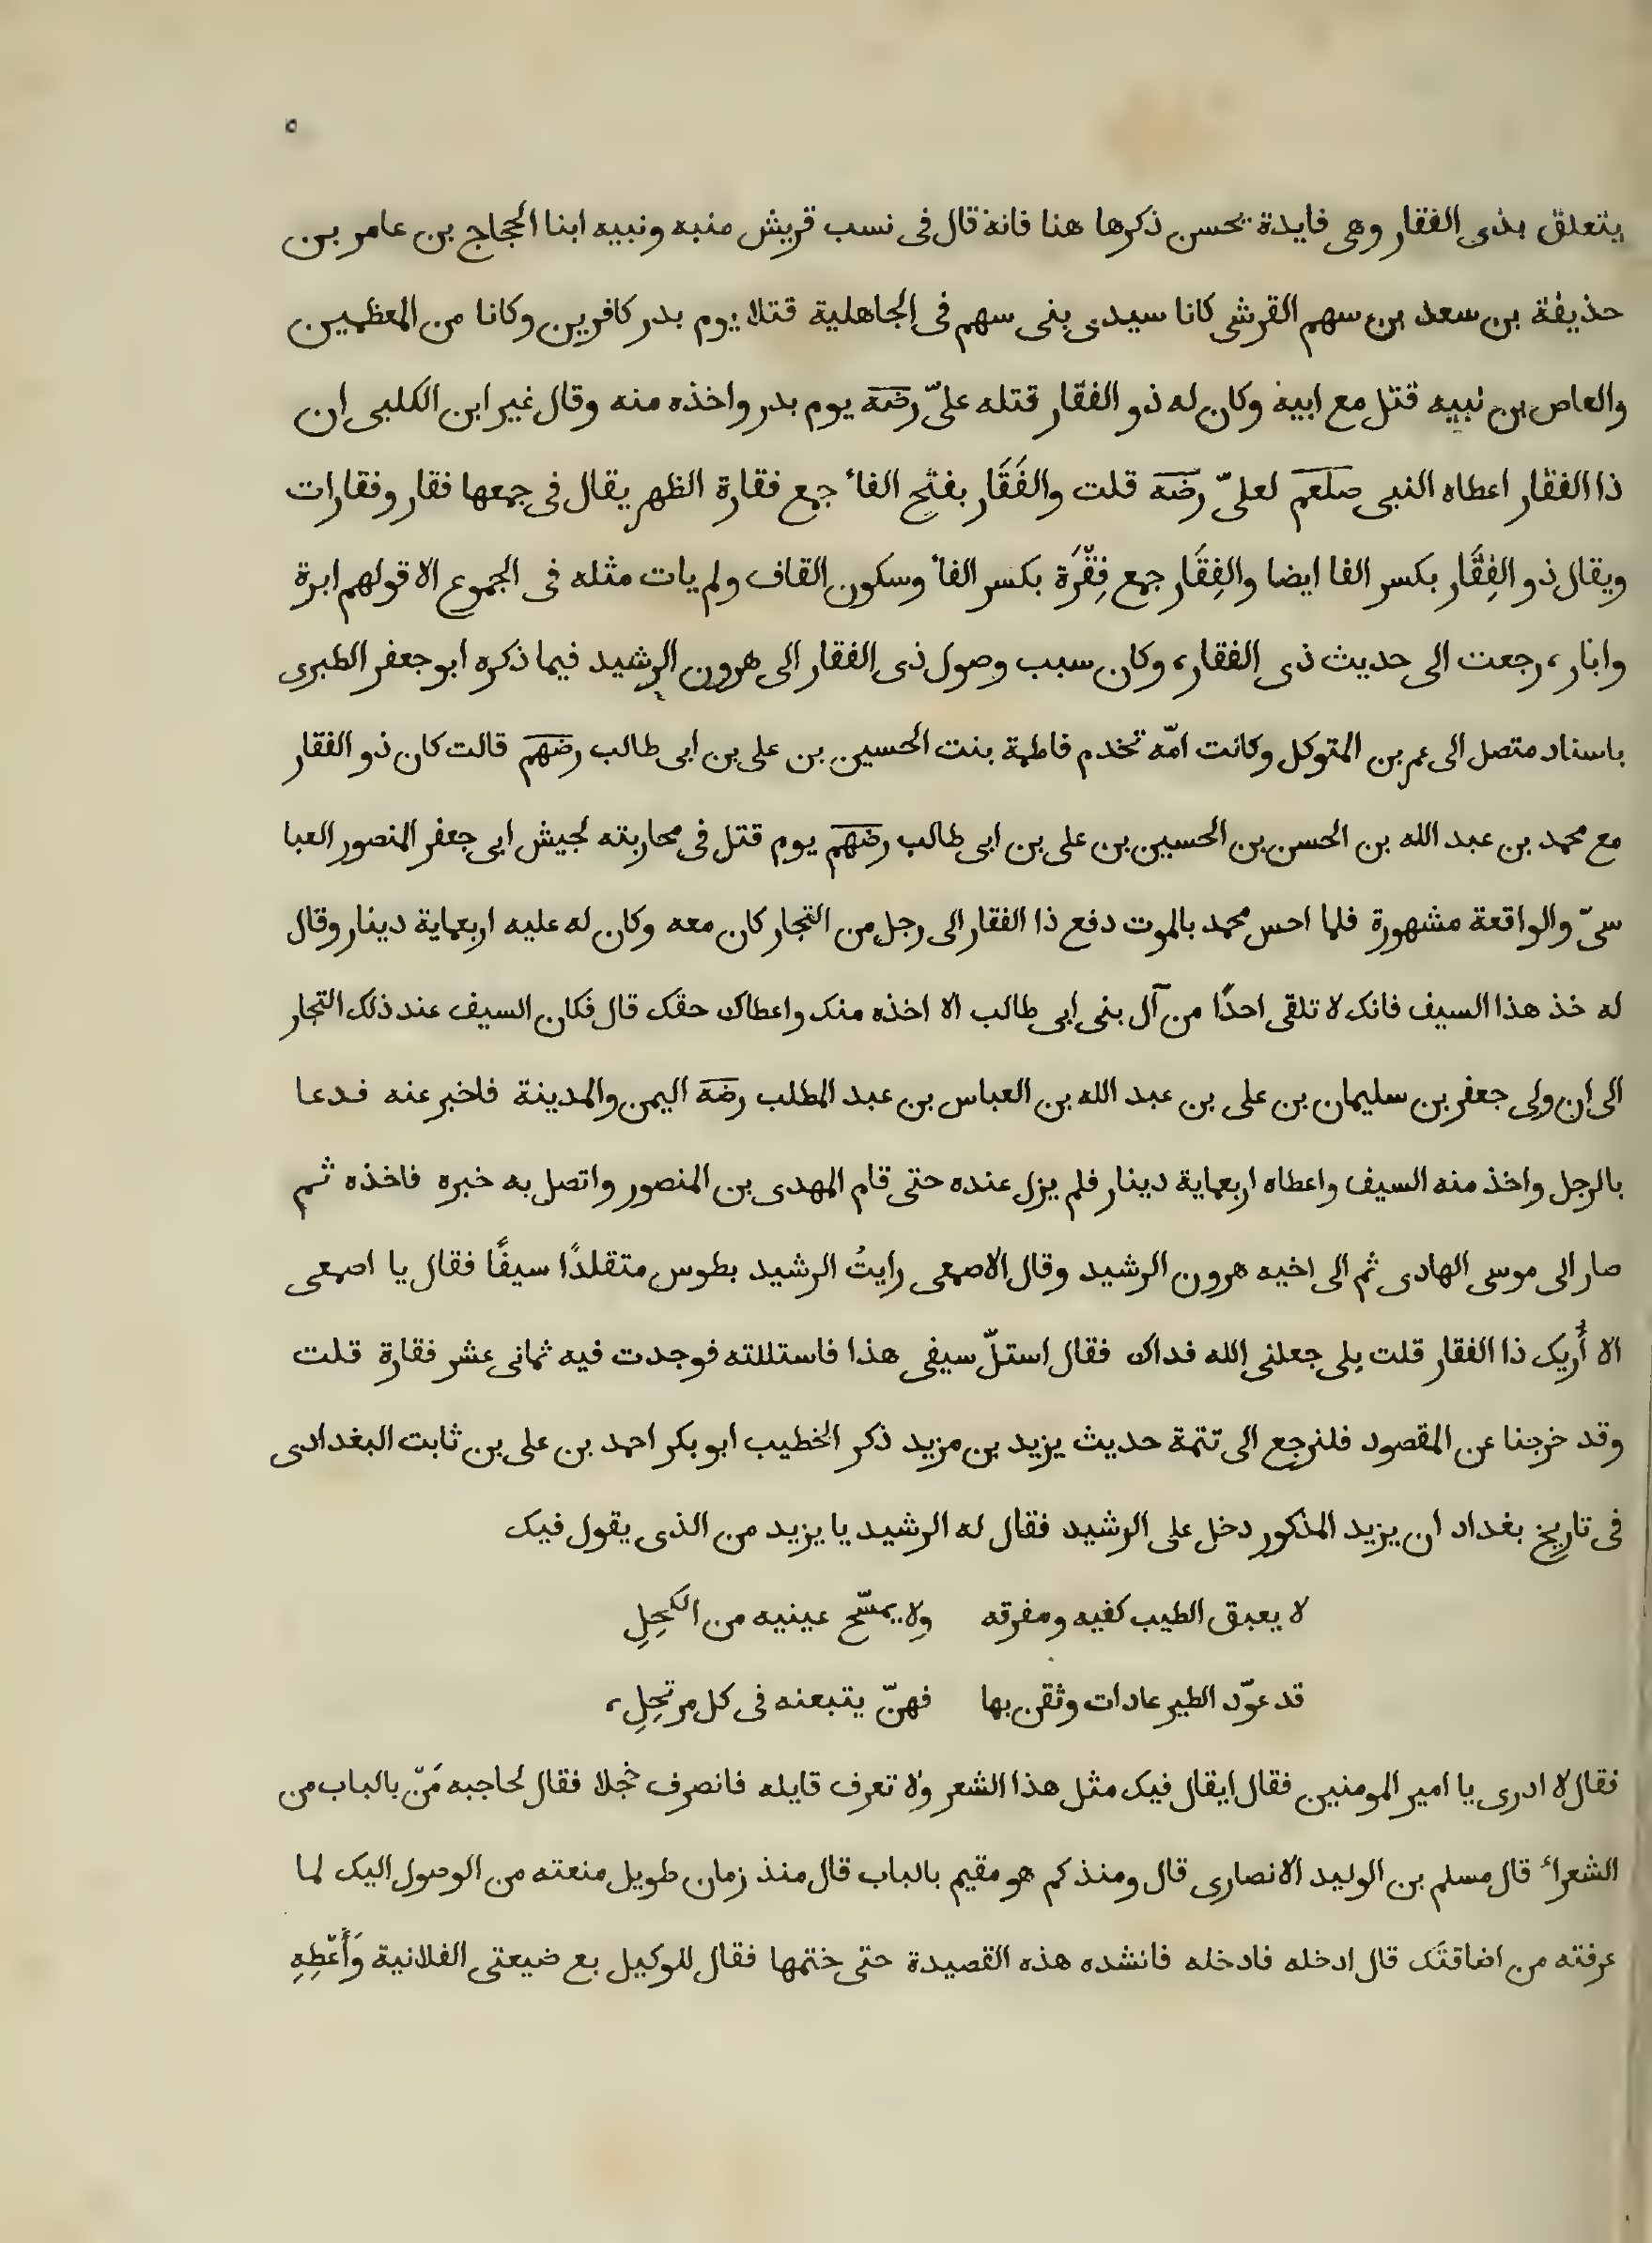 ٥
يتعلق بذى الفقار وهى فايدة يحسن ذكرها هنا فانه قال فى نسب قريش منبه ونبيه ابنا الحجاج بن عامر بن
حذيفة بن سعد بن سهم القرشى كانا سيدى بنى سهم فى الجاهلية قتلا يوم بدر كافرين وكانا من المعظمين
والعاص بن نبيه قتل مع ابيه وكان له ذو الفقار قتله علىّ رضه يوم بدر واخذه منه وقال غير ابن الكلبى ان
ذا الفقار اعطاه النبى صلعم لعلىّ رضه قلت والفَقَار بفتح الفاء جمع فقارة الظهر يقال فى جمعها فقار وفقارات
ويقال ذو الفِقَار بكسر الفا ايضا والفِقَار جمع فِقْرَة بكسر الفاء وسكون القاف ولم يات مثله فى الجموع الا قولهم ابرة
وابار، رجعت الى حديث ذى الفقار، وكان سبب وصول ذى الفقار الى هرون الرشيد فيما ذكره ابو جعفر الطبرى
باسناد متصل الى عمر بن المتوكل وكانت امّه تخدم فاطمة بنت الحسين بن على بن ابى طالب رضهم قالت كان ذو الفقار
مع محمد بن عبد الله بن الحسن بن الحسين بن على بن ابى طالب رضهم يوم قتل فى محاربته لجيش ابى جعفر المنصور العبا
سىّ والواقعة مشهورة فلما احس محمد بالموت دفع ذا الفقار الى رجل من التجار كان معه وكان له عليه اربعماية دينار وقال
له خذ هذا السيف فانك لا تلقى احدًا من آل بنى ابى طالب الا اخذه منك واعطاك حقك قال فكان السيف عند ذلك التجار
الى ان ولى جعفر بن سليمان بن على بن عبد الله بن العباس بن عبد المطلب رضه اليمن والمدينة فاخبر عنه فدعا
بالرجل واخذ منه السيف واعطاه اربعماية دينار فلم يزل عنده حتى قام المهدى بن المنصور واتصل به خبره فاخذه ثم
صار الى موسى الهادى ثم الى اخيه هرون الرشيد وقال الاصمعى رايتُ الرشيد بطوس متقلدًا سيفًا فقال يا اصمعى
الا أُريك ذا الفقار قلت بلى جعلنى الله فداك فقال استلّ سيفى هذا فاستللته فوجدت فيه ثمانى عشر فقارة قلت
وقد خرجنا عن المقصود فلنرجع الى تتمة حديث يزيد بن مزيد ذكر الخطيب ابو بكر احمد بن على بن ثابت البغدادى
فى تاريخ بغداد ان يزيد المذكور دخل على الرشيد فقال له الرشيد يا يزيد من الذى يقول فيك
لا يعبق الطيب كفيه ومفرقه ولا يمسّح عينيه من الكحِلِ
قد عوّد الطير عادات وثقن بها فهنّ يتبعنه فى كل مرتحِلِ،
فقال لا ادرى يا امير المومنين فقال ايقال فيك مثل هذا الشعر ولا تعرف قايله فانصرف خجلا فقال لحاجبه مَنْ بالباب من
الشعراء قال مسلم بن الوليد الانصارى قال ومنذ كم هو مقيم بالباب قال منذ زمان طويل منعته من الوصول اليك لما
عرفته من اضاقتَك قال ادخله فادخله فانشده هذه القصيدة حتى ختمها فقال للوكيل بع ضيعتى الفلانية وَأَعْطِهِ